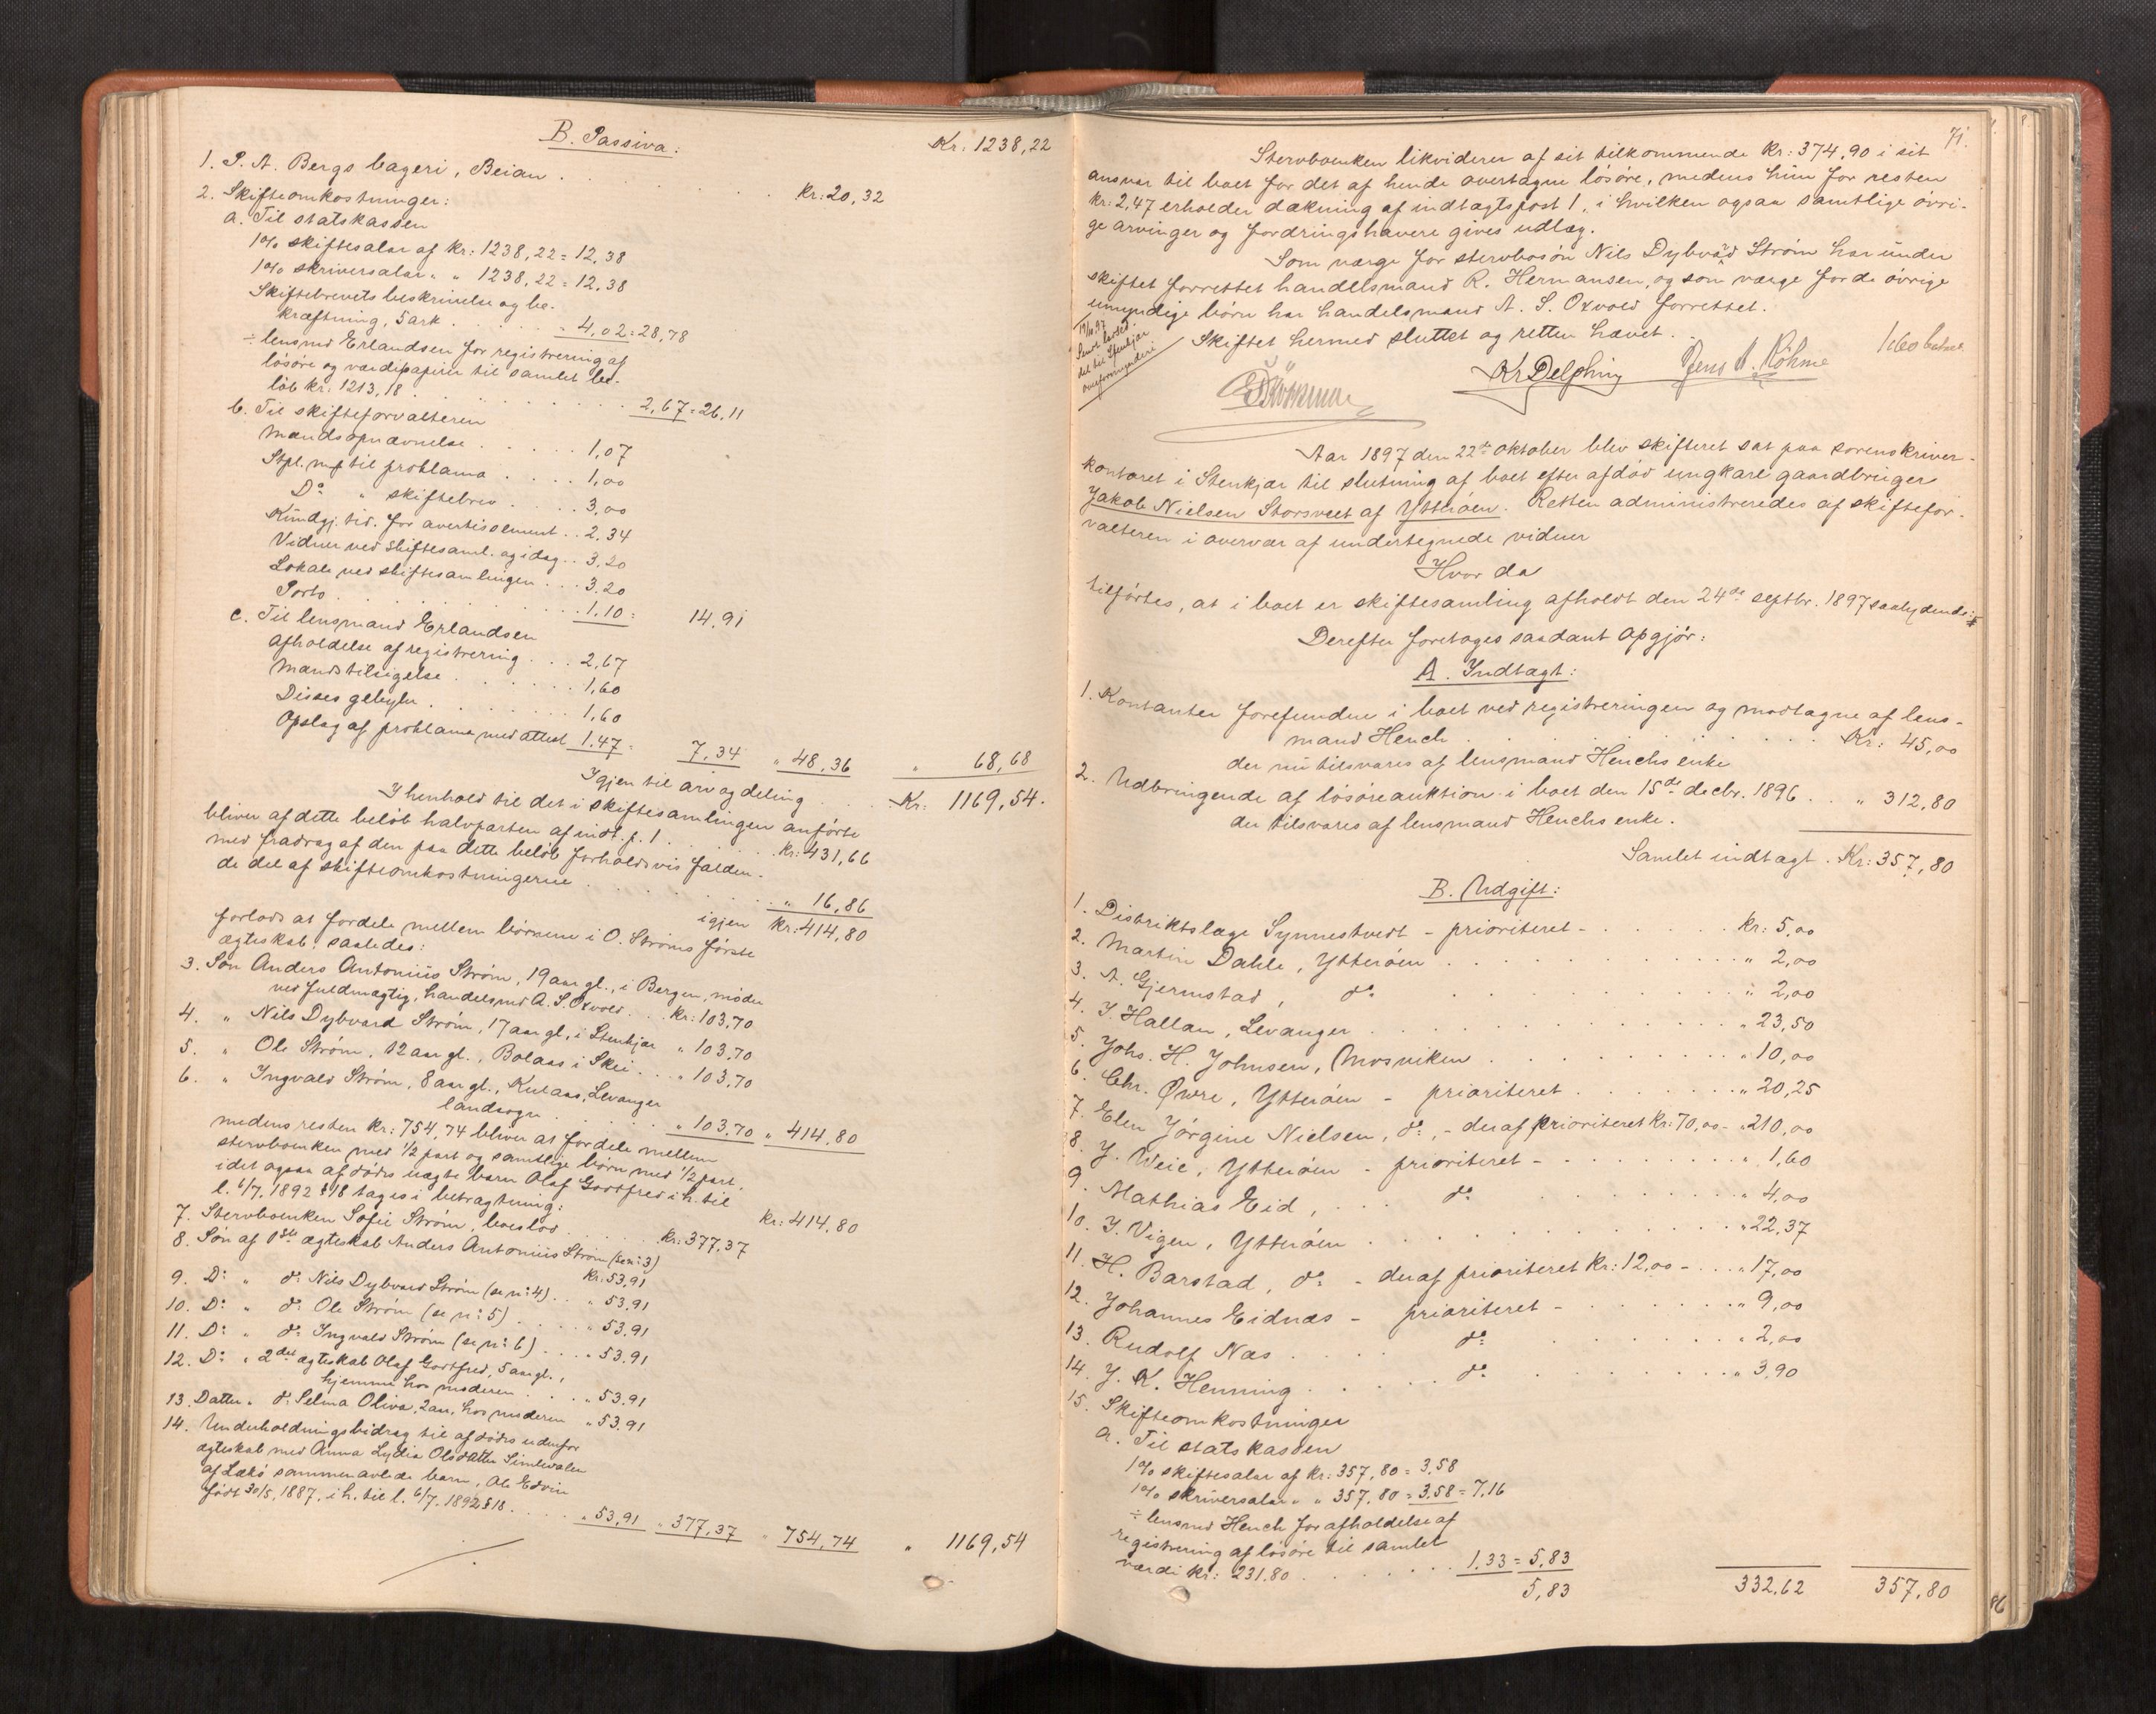 B. Passiva:
Kr: 1238,22
1. P. A. Bergs bageri, Beian . . . . . . . kr: 20,32
2. Skifteomkostninger:
a. Til statskassen
1% skiftesalar af kr: 1238,22 = 12,38
1% skriversalar " " 1238,22 = 12.38
Skiftebrevets beskrivelse og be-
kræftning, 5 ark . . . . . = 4,02 = 28,78
÷ lensmd Erlandsen for registrering af
løsøre og værdipapirer til samlet be-
løb kr: 1213,18 . . . . . . . . . 2,67 = 26,11
b. Til skifteforvalteren
Mandsopnævnelse . . . . . 1,07
Stpl. mp til proklama . . . . 1,00
Do " skiftebrev . . . . 3,00
Kundgj. tid. for avertissement . . 2.34
Vidner ved skiftesaml. og idag . . 3,20
Lokale ved skiftesamlingen . . . 3.20
Porto . . . . . . . . . . . 1.10 = 14,91
c. Til lensmand Erlandsen
Afholdelse af registrering . . . 2,67
Mands tilsigelse . . . . . . 1,60
Disses gebyhr . . . . . . . 1,60
Opslag af proklama med attest 1.47 = 7,34 " 48,36 " 68,68
Igjen til arv og deling . . . Kr: 1169,54.
I henhold til det i skiftesamlingen anførte
bliver af dette beløb halvparten af indt. p. 1 . . . . . . . kr: 431,66
med fradrag af den paa dette beløb forholdsvis falden-
de del af skifteomkostningerne . . . . . . . . " 16,86
igjen kr: 414,80
forlods at fordele mellem børnene i O. Strøms første
ægteskab, saaledes:
3. Søn Anders Antonius Strøm, 19 aar gl., i Bergen, møder
ved fuldmægtig, handelsmd A. S. Oxvold . . . kr: 103,70
4. " Nils Dybvard Strøm, 17 aar gl., i Stenkjær " 103.70
5. " Ole Strøm, 12 aar gl., Bolaas i Skei . . . " 103,70
6. " Ingvald Strøm, 8 aar gl., Kulaas, Levanger
landsogn . . . . . . " 103.70 " 414,80
medens resten kr: 754,74 bliver at fordele mellem
stervboenken med 1/2 part og samtlige børn med 1/2 part,
idet ogsaa afdødes uægte barn Olaf Godtfred i h. til
l. 6/7. 1892 § 18 tages i betragtning: kr: 414,80
7. Stervboenken Sofie Strøm, boeslod . . . . . kr: 377,37
8. Søn af 1ste ægteskab Anders Antonius Strøm (se n: 3)
kr: 53,91
9. Do " do Nils Dybvard Strøm (se n: 4) . . " 53.91
10. Do " do Ole Strøm (se n: 5) . . . . . " 53.91
11. Do " do Ingvald Strøm (se n: 6) . . . . " 53.91
12. Do " 2det ægteskab Olaf Godtfred, 5 aar gl.,
hjemme hos moderen . . . . " 53.91
13. Datter " do Selma Oliva, 2 aar, hos moderen " 53.91
14. Underholdningsbidrag til afdødes udenfor
ægteskab med Anna Lydia Olsdatter Simlevalen
af Lækø sammenavlede barn, Ole Edvin
født 30/5. 1887, i h. til l. 6/7. 1892 § 18 . . . . . " 53,91 " 377,37 " 754,74 " 1169,54
71.
Stervboenken likviderer af sit tilkommende kr: 374,90 i sit
ansvar til boet for det af hende overtagne løsøre, medens hun for resten
kr: 2,47 erholder dækning af indtægtspost 1, i hvilken ogsaa samtlige øvri-
ge arvinger og fordringshavere gives udlæg.
Som værge for stervbosøn Nils Dybvad Strøm har under
skiftet forrettet handelsmand R. Hermansen, og som værge for de øvrige
umyndige børn har handelsmand A. S. Oxvold forrettet.
Skiftet hermed sluttet og retten hævet.
1.60 betalt
Kr Delphin Jens A. Røhme
Aar 1897 den 22de oktober blev skifteret sat paa sorenskriver-
kontoret i Stenkjær til slutning af boet efter afdød ungkarl gaardbruger
Jakob Nielsen Storsveet af Ytterøen. Retten administreredes af skiftefor-
valteren i overvær af undertegnede vidner
Hvor da
tilførtes, at i boet er skiftesamling afholdt den 24de septbr. 1897 saalydende:
Derefter foretoges saadant Opgjør:
A. Indtægt:
1. Kontanter forefundne i boet ved registreringen og modtagne af lens-
mand Hench . . . . . . . . . . . . Kr: 45,00
der nu tilsvares af lensmand Henchs enke
2. Udbringende af løsøreauktion i boet den 15de decbr. 1896 . . " 312,80
der tilsvares af lensmand Henchs enke.
Samlet indtægt . Kr: 357,80
B. Udgift:
1. Distriktslæge Synnestvedt - prioriteret - . . . . . . kr: 5,00
2. Martin Dahle, Ytterøen . . . . . . . . . " 2,00
3. A. Gjermstad, do . . . . . . . . . " 2,00
4. I. Hallan, Levanger . . . . . . . . . . . " 23,50
5. Johs. H. Johnsen, Mosviken . . . . . . . . " 10,00
6. Chr. Øvre, Ytterøen - prioriteret . . . . . . " 20,25
7. Elen Jørgine Nielsen, do, - deraf prioriteret kr: 70,00 - " 210,00
8. J. Weie, Ytterøen - prioriteret - . . . . . . . . " 1,60
9. Mathias Eid, . . . do . . . . . . . . " 4,00
10. I. Vigen, Ytterøen . . . . . . . . . . . " 22,37
11. H. Barstad, do - deraf prioriteret kr: 12,00 - . . . " 17,00
12. Johannes Eidnæs - prioriteret - . . . . . . . " 9,00
13. Rudolf Næs . . . . do . . . . . . . . " 2,00
14. J. K. Henning . . . . . do . . . . . . . . " 3,90
15. Skifteomkostninger
a. Til statskassen
1% skiftesalar af kr: 357,80 = 3,58
1% skriversalar " " 357,80 = 3,58 = 7,16
÷ lensmd Hench for afholdelse af
registrering af løsøre til samlet
værdi kr: 231.80 . . . . . . . . 1.33 = 5,83
5,83 332,62 357,80